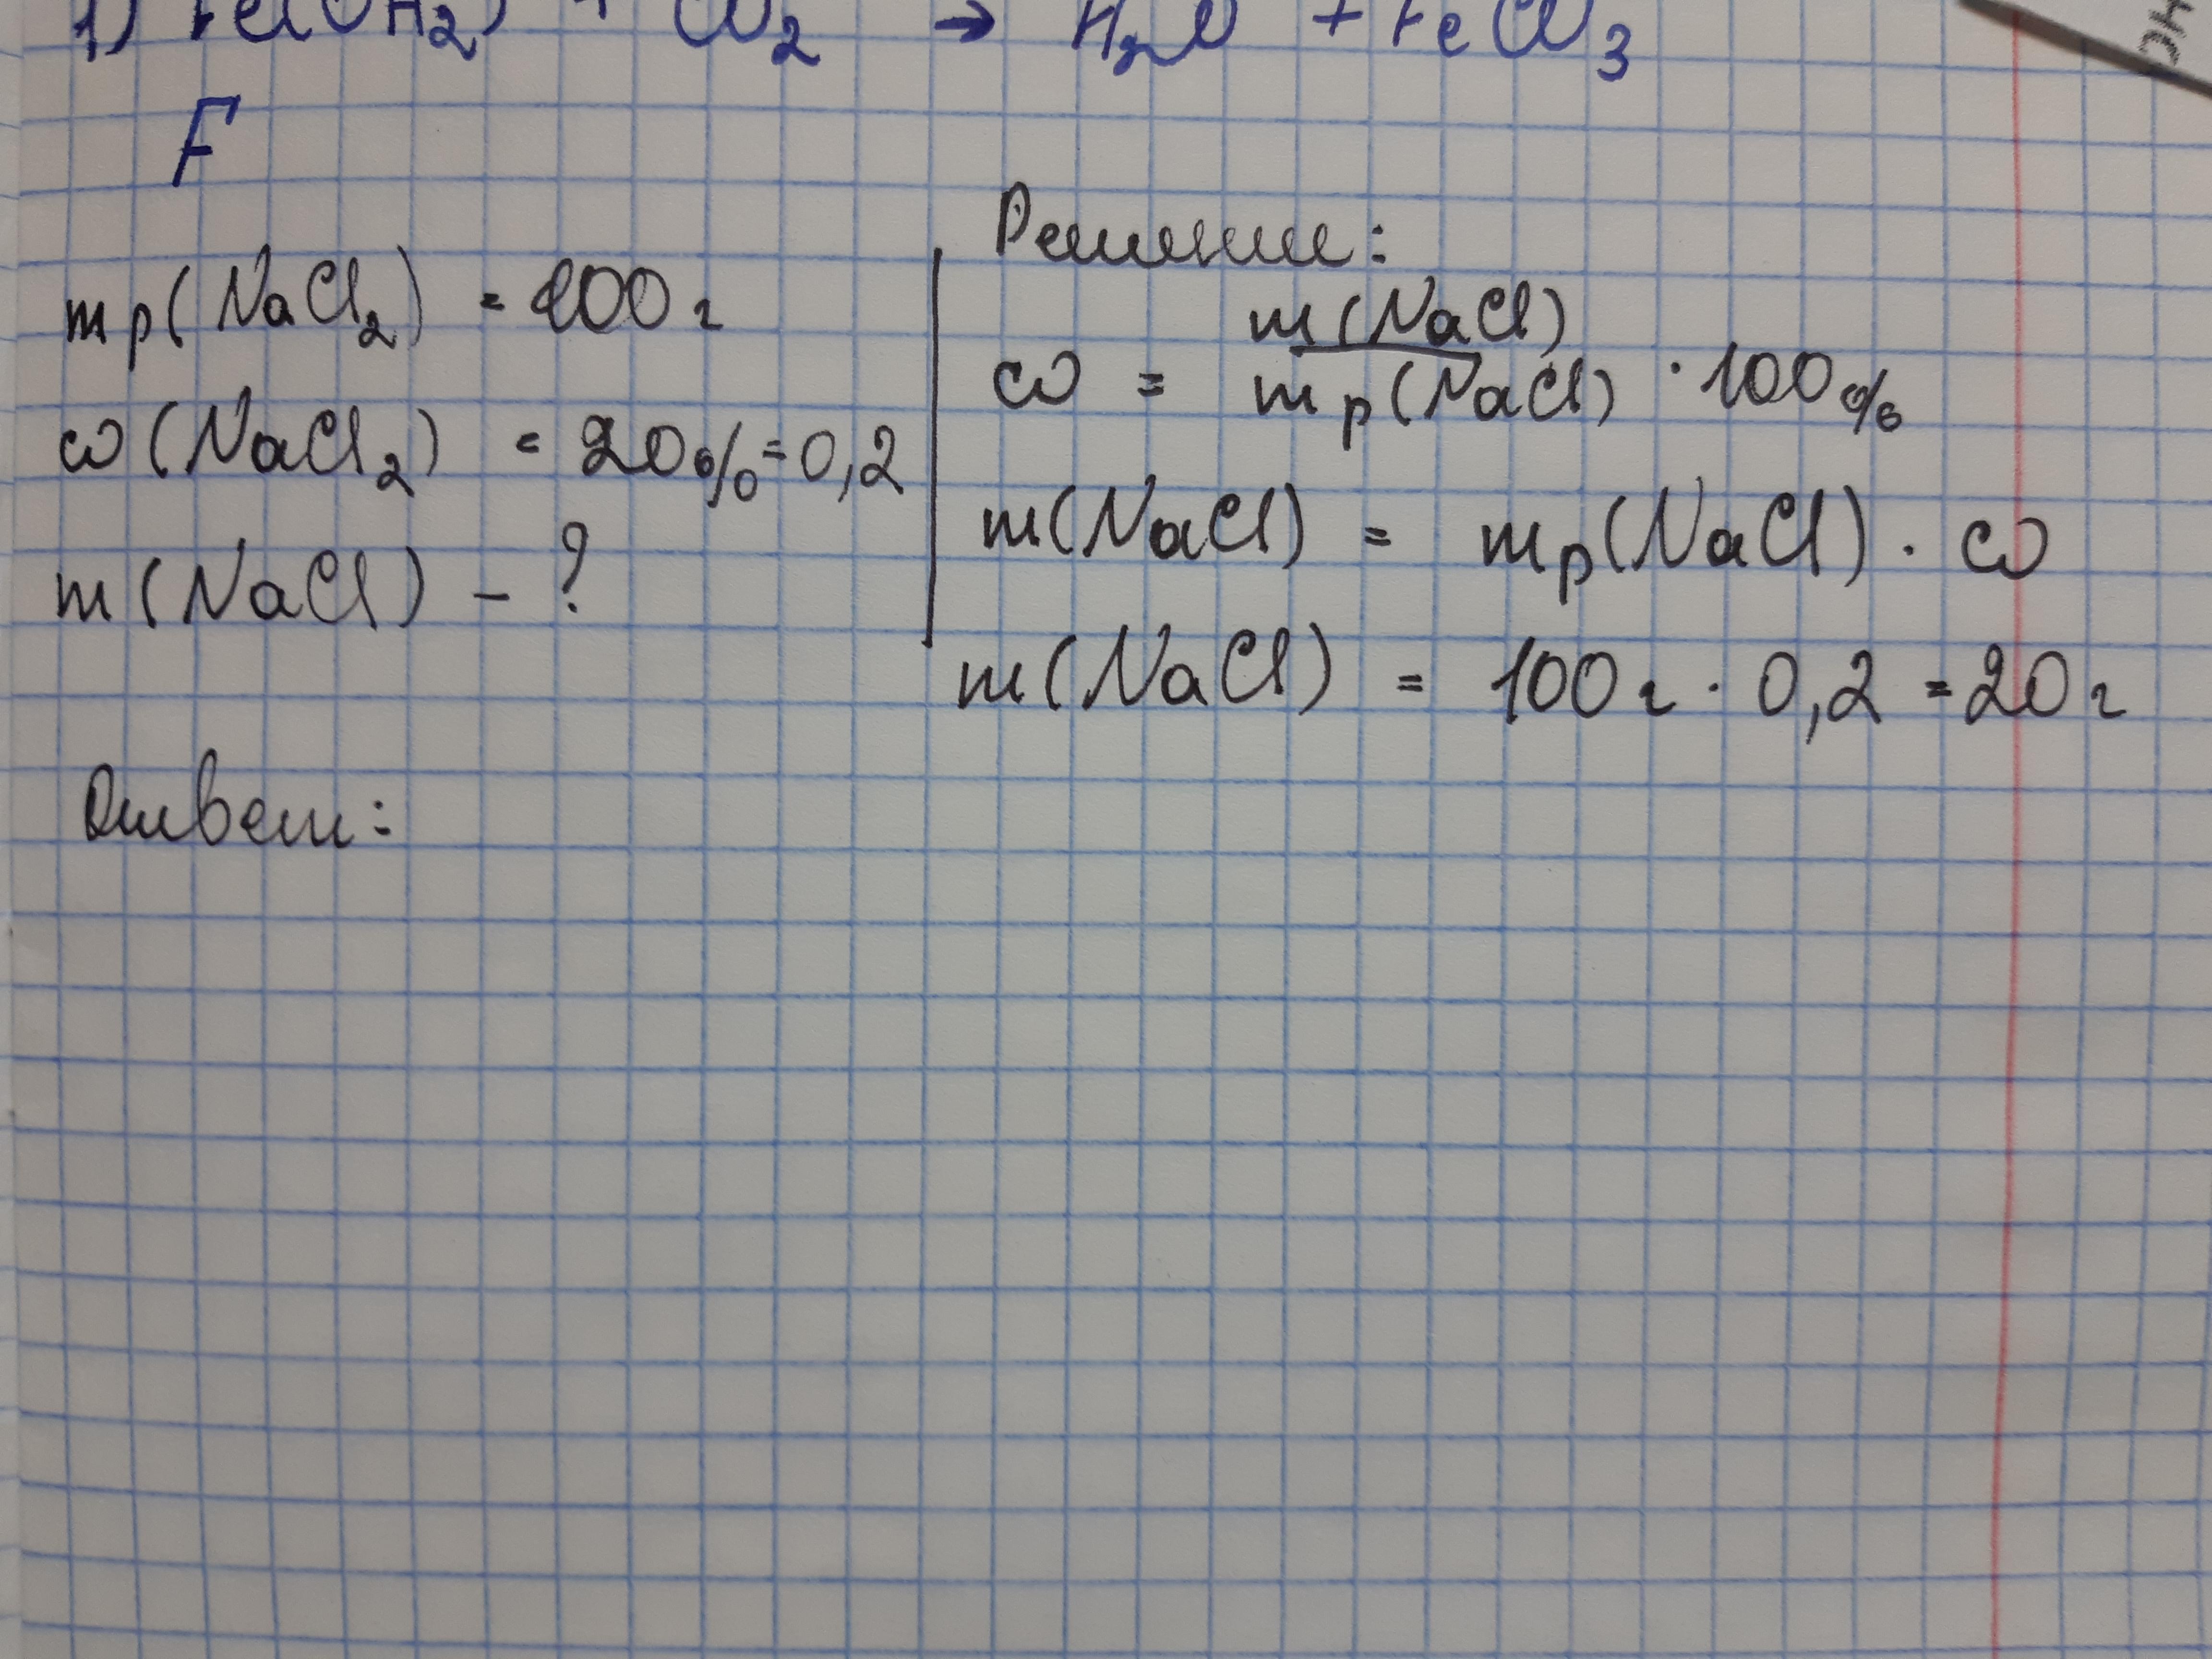 1) Fe(OH₂) + Cl₂ → H₂O + FeCl₃
F
mр(NaCl₂) = 200 г
ω(NaCl₂) = 20% = 0,2
m(NaCl) – ?
Решение:
ω = m(NaCl) / mр(NaCl) · 100%
m(NaCl) = mр(NaCl) · ω
m(NaCl) = 100 г · 0,2 = 20 г
Ответ: